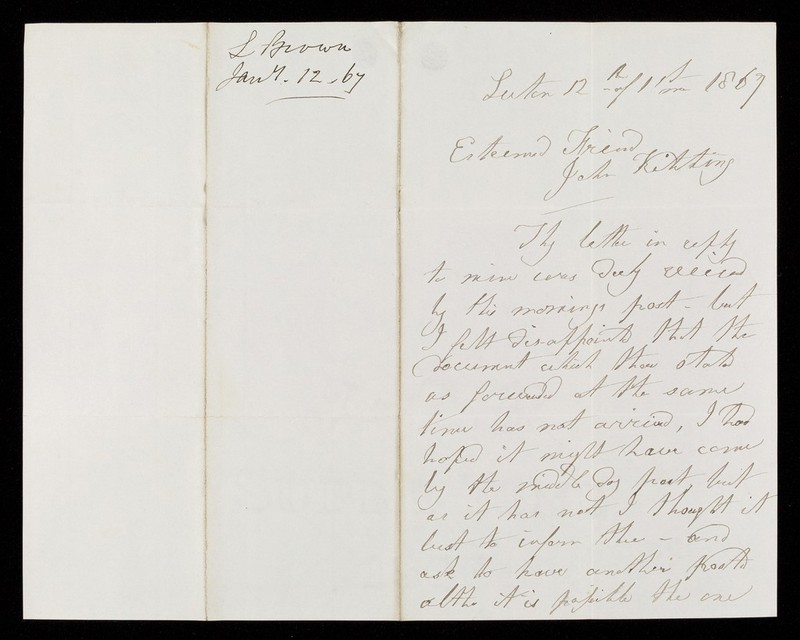 L Brown
Jany. 12. 67
Luton 12th of 1st m 1867
Esteemed Friend
John
Thy letter in reply
to mine was duly received
by this mornings post - but
I felt disappointed that the
document which thou stated
as forwarded at the same
time has not arrived, I had
hoped it might have come
by the middle day post, but
as it has not I thought it
best to inform thee - and
ask to have another posted
altho it is possible the one